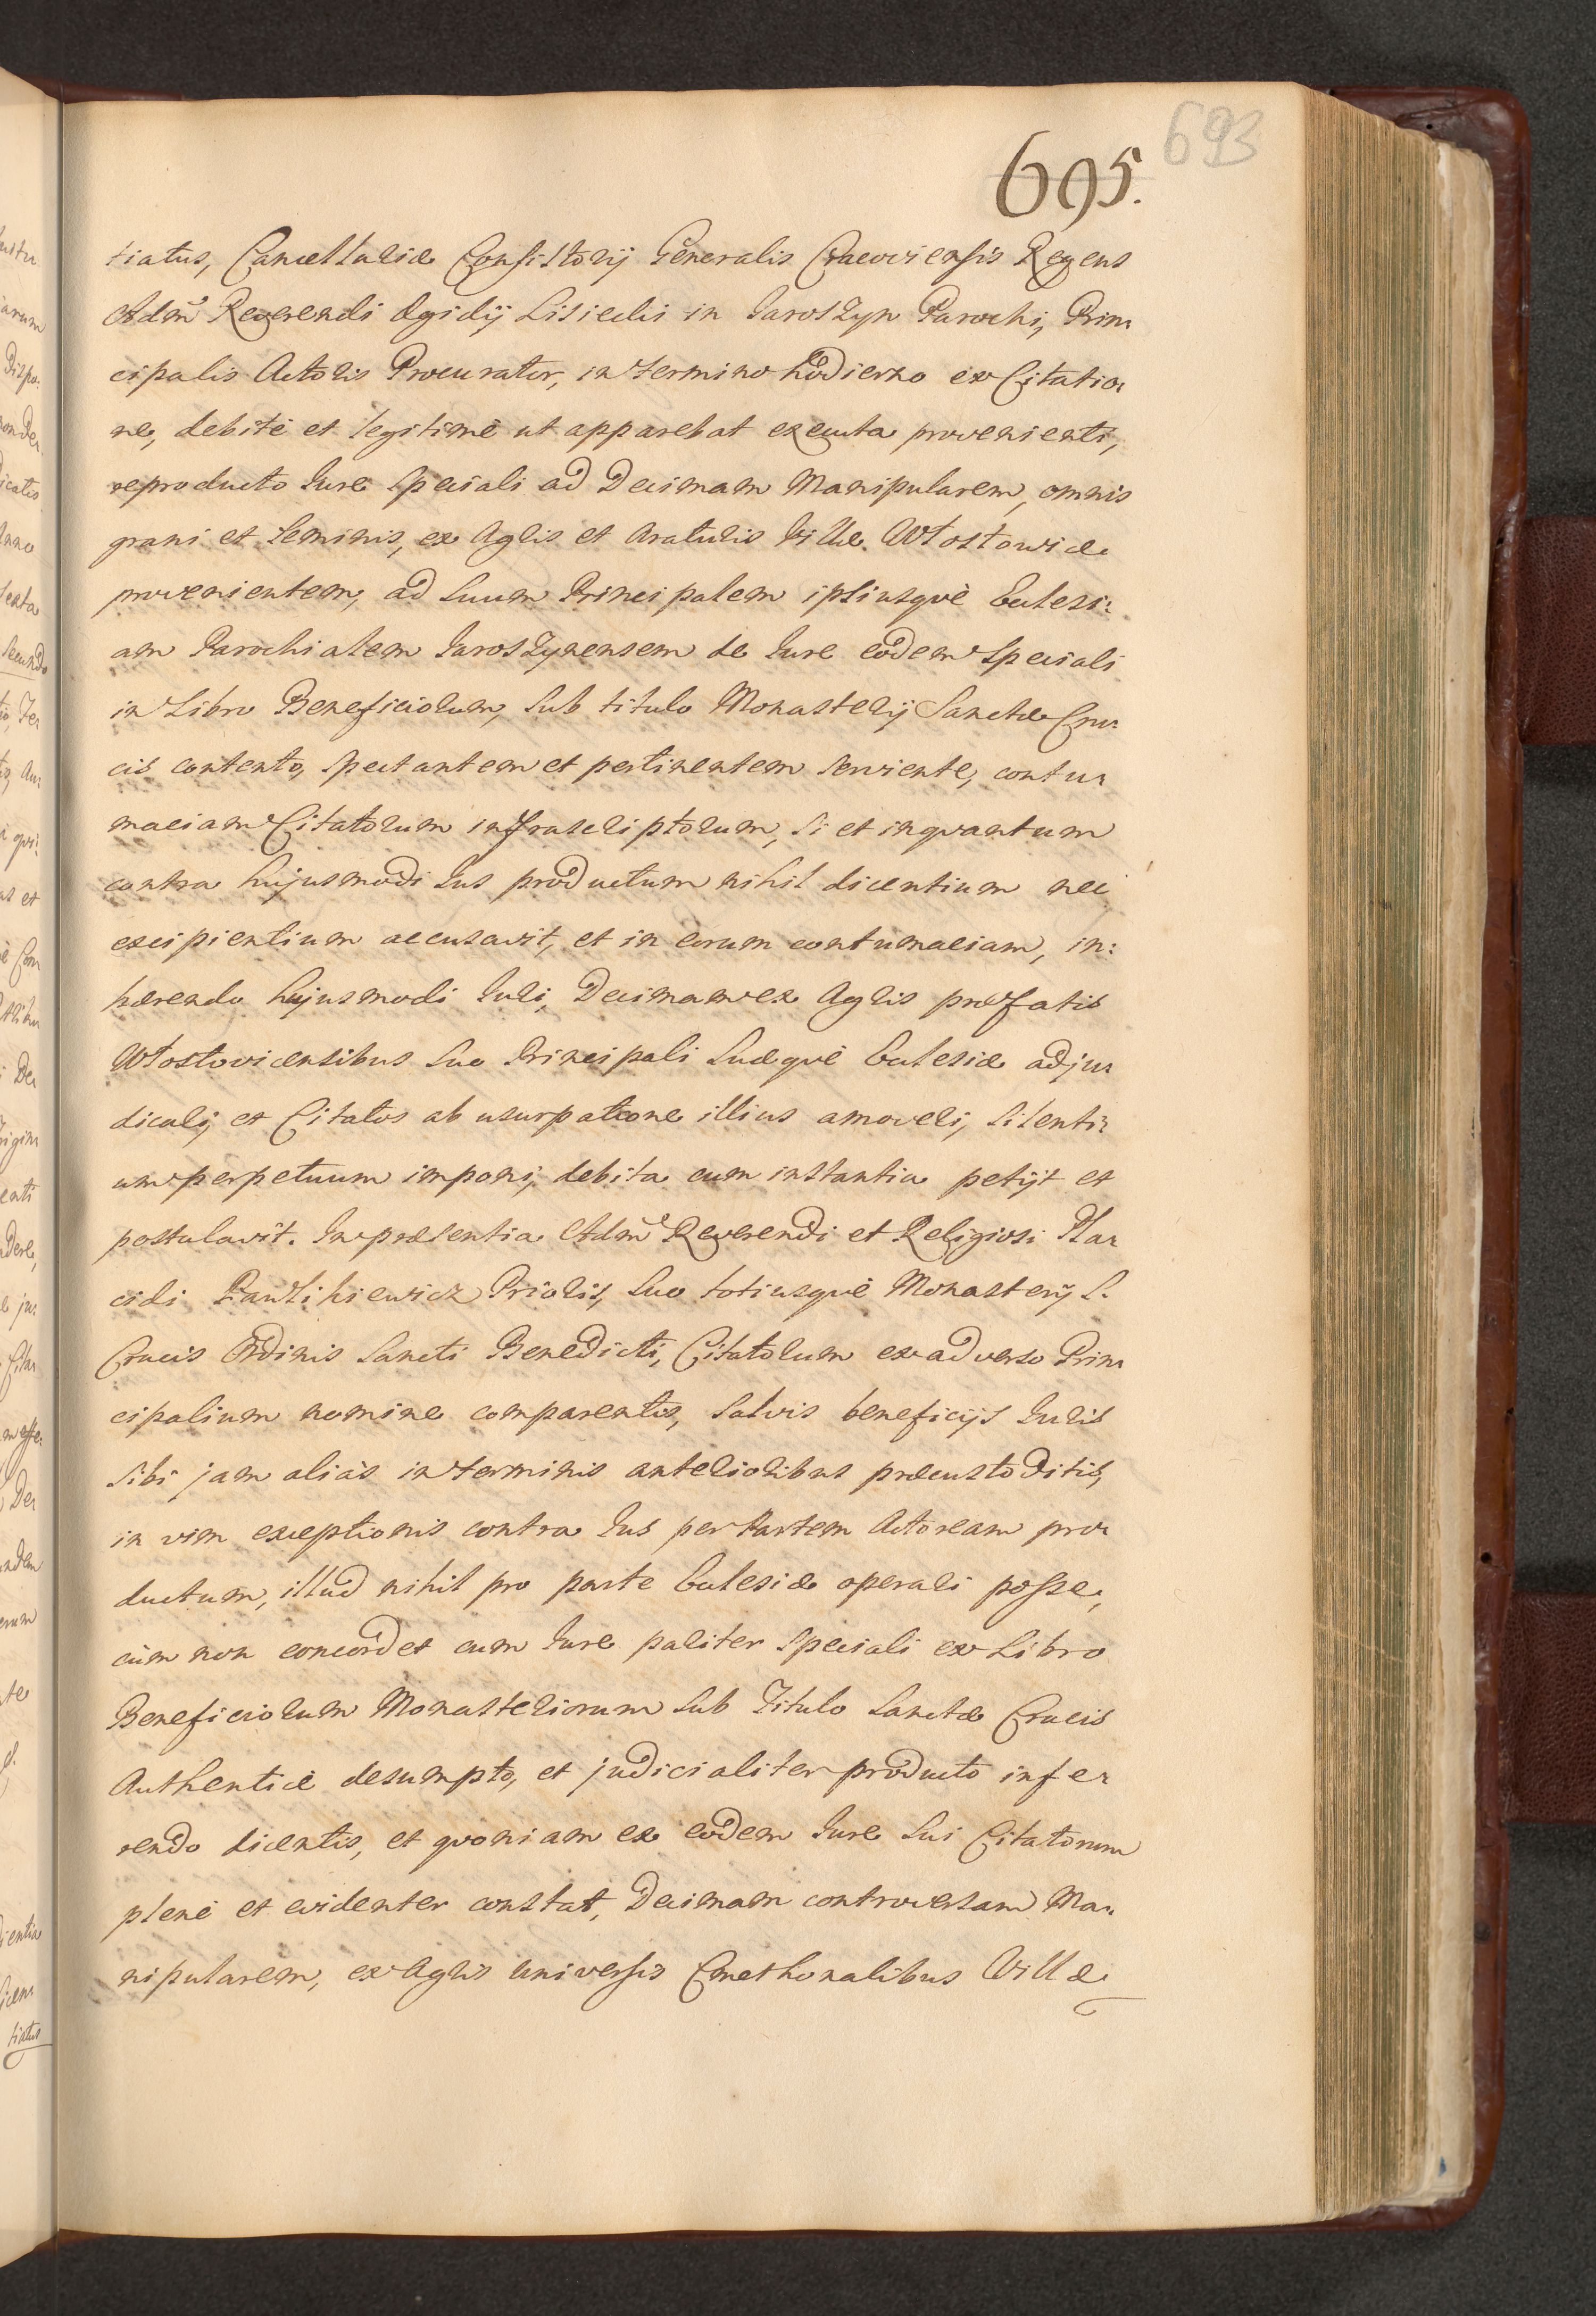 693
695.
tiatus, Cancellariæ Consistorij Generalis Cracoviensis Regens
Admº Reverendi Ægidij Lisiecki in Jaroszyn Parochi, Prin
cipalis Actoris Procurator, in termino hodierno ex Citatio
ne, debitè et legitimè ut apparebat executa provenienti,
reproducto Jure speciali ad Decimam Manipularem, omnis
grani et seminis, ex Agris et Araturis Villæ Włostowicæ
provenientem, ad suum Principalem ipsiusquè Ecclesi:
am Parochialem Jaroszynensem de Jure eodem speciali
in Libro Beneficiorum, sub titulo Monasterij Sanctæ Cru
cis contento, spectantem et pertinentem serviente, contu
maciam Citatorum infrascriptorum, si et inquantum
contra hujusmodi Jus productum nihil dicentium nec
excipientium accusavit, et in eorum contumaciam, in:
hærendo hujusmodi Juri, Decimam ex Agris præfatis
Włostovicensibus suo Principali suæquè Ecclesiæ adju
dicari, et Citatos ab usurpatione illius amoveri, silenti
um perpetuum imponi, debita cum instantia petijt et
postulavit. In præsentia Admº Reverendi et Religiosi Pla
cidi Prioris, suo totiusquè Monasterij S.
Crucis Ordinis Sancti Benedicti, Citatorum ex adverso Prin
cipalium nomine comparentis, salvis beneficijs Juris
sibi jam aliàs in terminis anterioribus præcustoditis,
in vim exceptionis contra Jus per Partem Actoream pro
ductum, illud nihil pro parte Ecclesiæ operari posse,
cùm non concordet cum Jure pariter speciali ex Libro
Beneficiorum Monasteriorum sub Titulo Sanctæ Crucis
Authenticè desumpto, et judicialiter producto infe
rendo dicentis, et quoniam ex eodem Jure sui Citatorum
plenè et evidenter constat, Decimam controversam Ma
nipularem, ex Agris universis Cmethonalibus Villæ